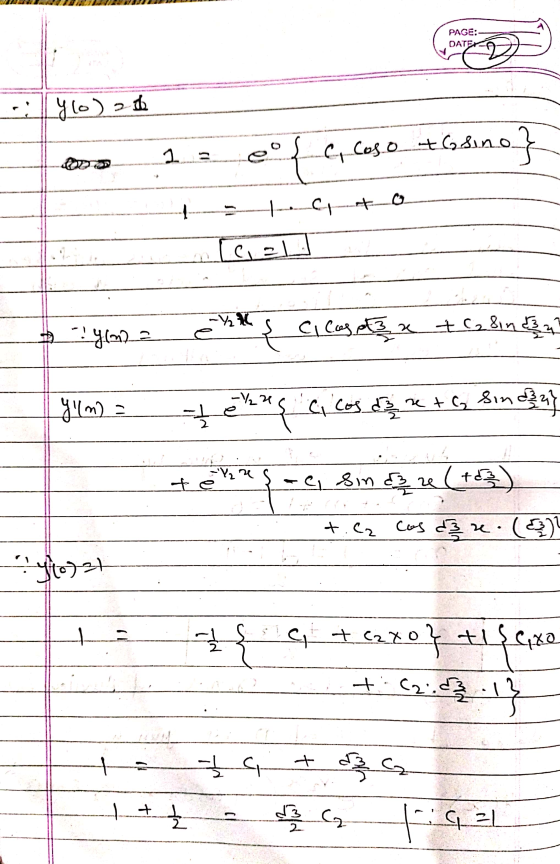 PAGE:
DATE: 2
∵ y(0) = 1
1 = e⁰ { C₁ Cos0 + C₂ Sin0 }
1 = 1 · C₁ + 0
C₁ = 1.
→ ∵ y(x) = e^{-1/2 x} { C₁ Cos √3/2 x + C₂ Sin √3/2 x }
y'(x) = -1/2 e^{-1/2 x} { C₁ Cos √3/2 x + C₂ Sin √3/2 x }
+ e^{-1/2 x} { - C₁ Sin √3/2 x (+√3/2)
+ C₂ Cos √3/2 x · (√3/2) }
∵ y'(0) = 1
1 = -1/2 { C₁ + C₂ × 0 } + 1 { C₁ × 0
+ C₂ · √3/2 · 1 }
1 = -1/2 C₁ + √3/2 C₂
1 + 1/2 = √3/2 C₂ | ∵ C₁ = 1